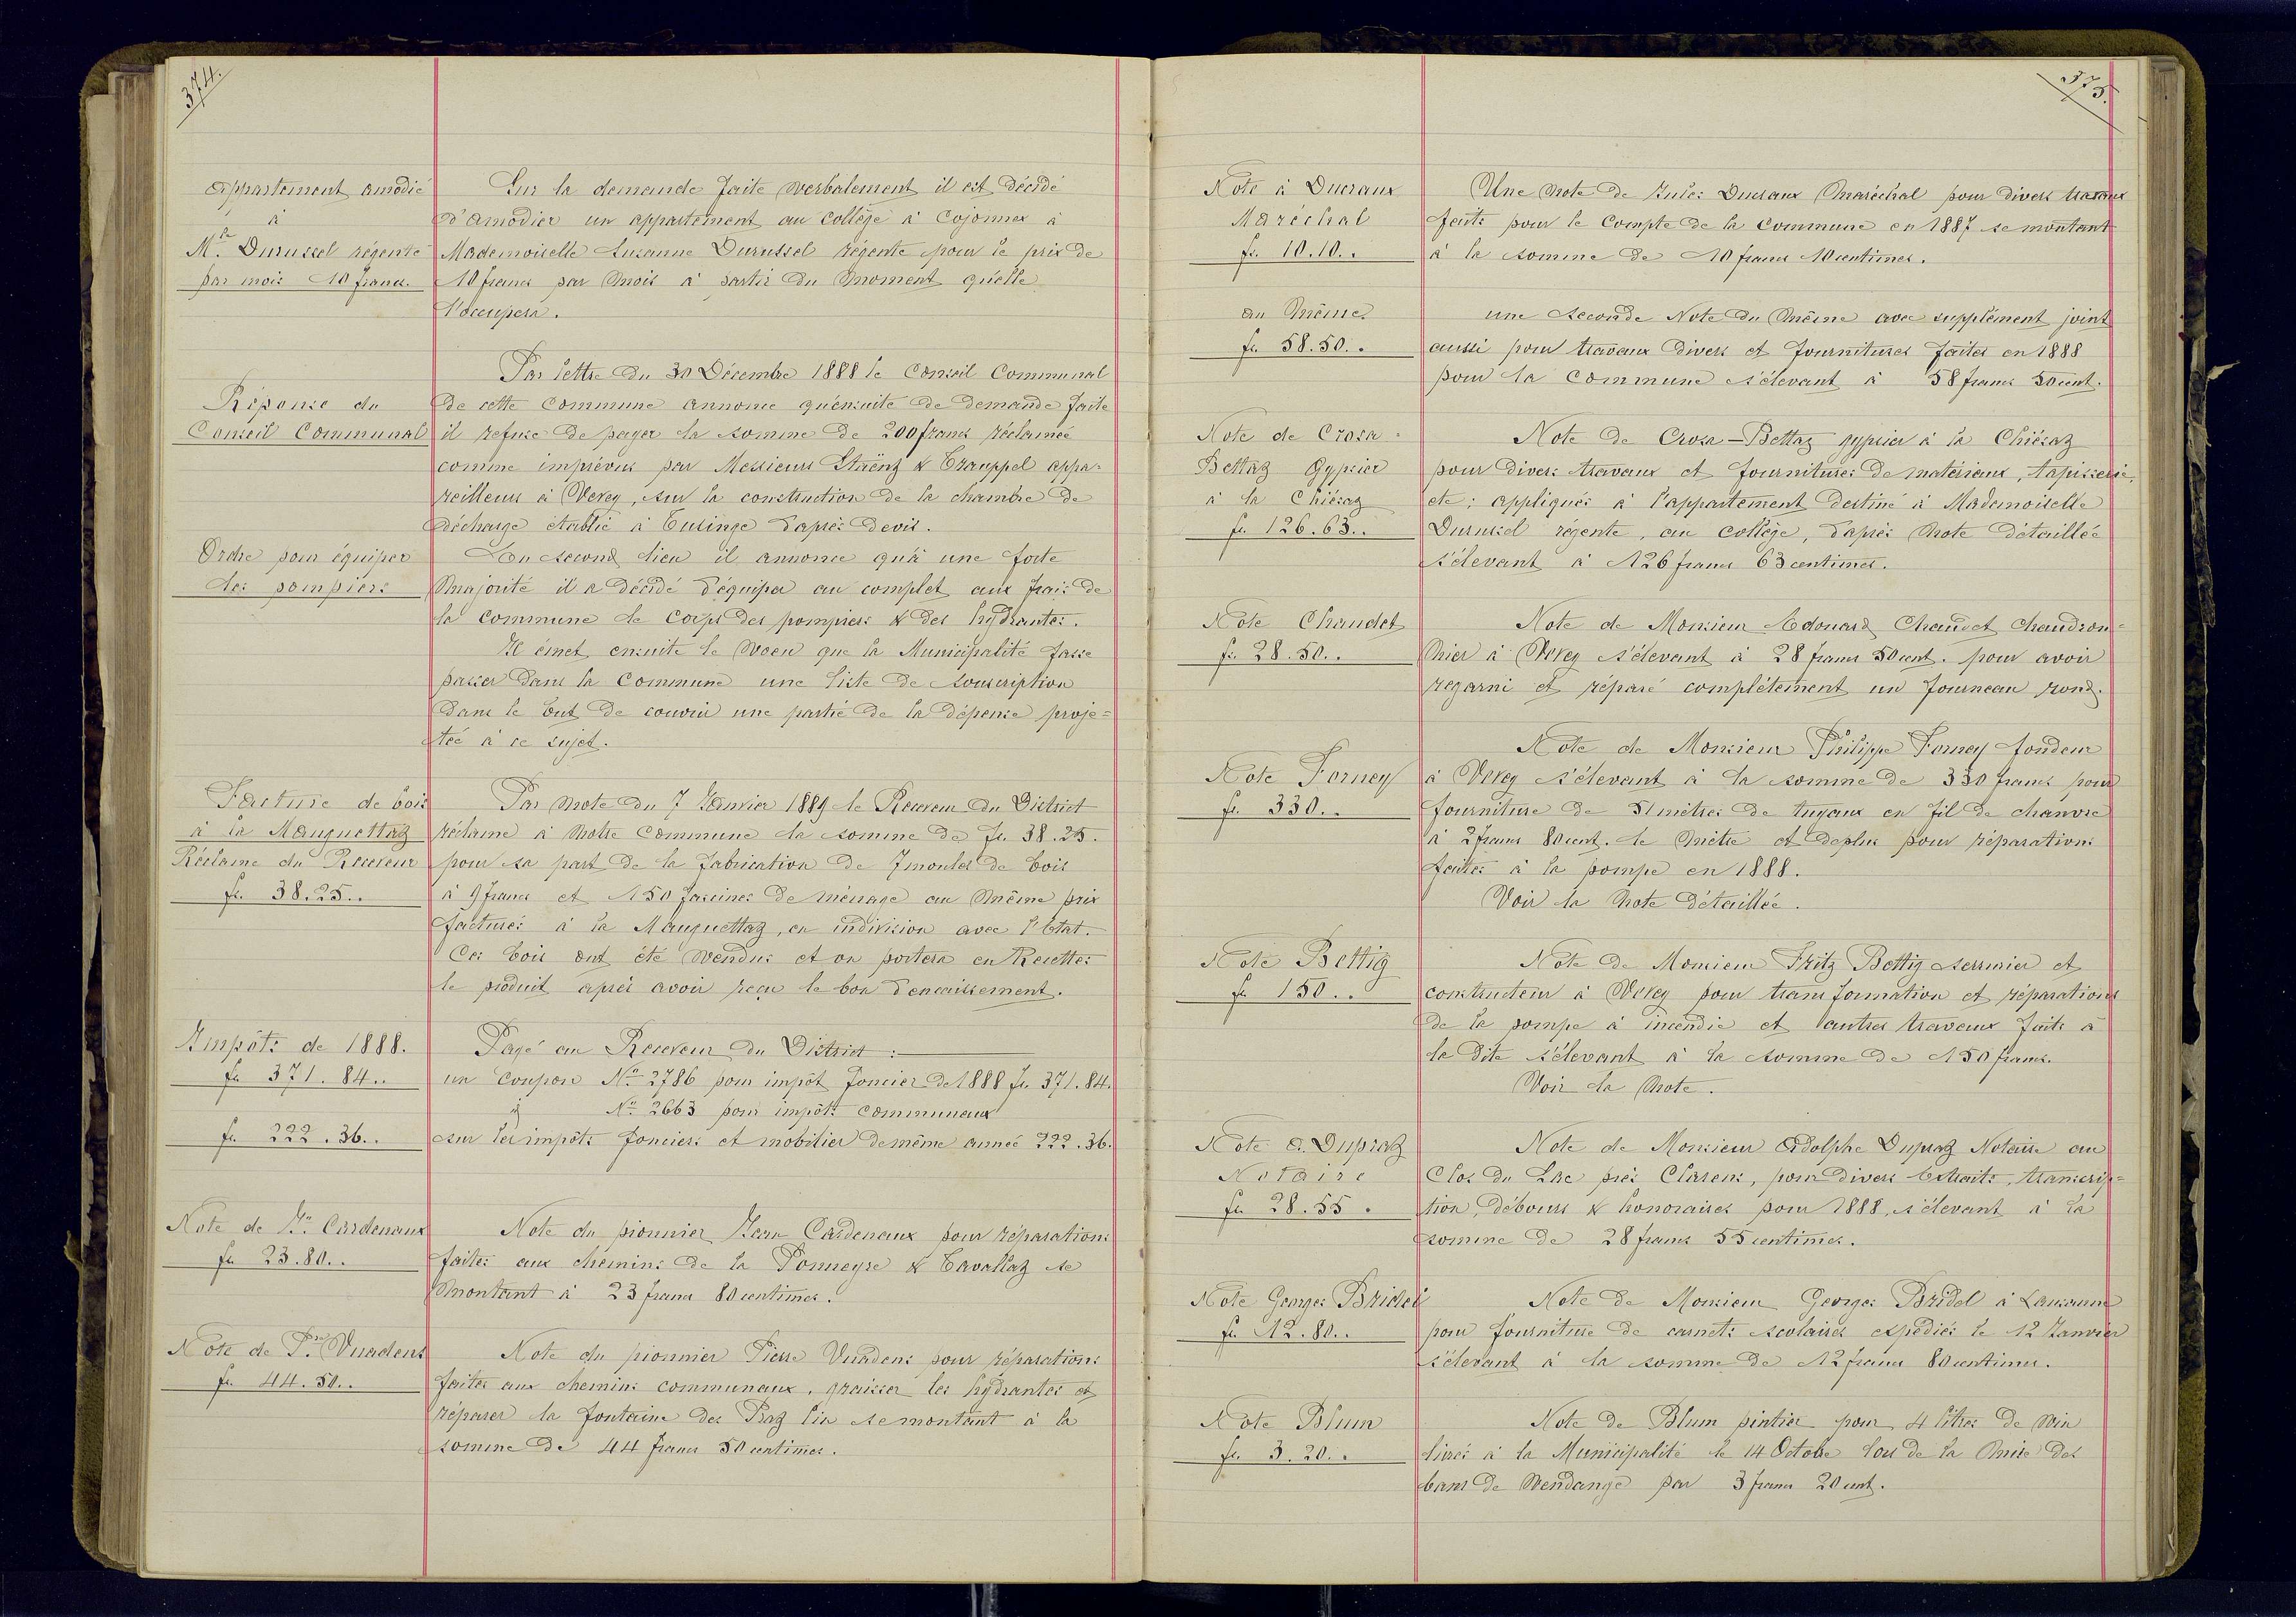 374.
Appartement amodié
à
Mlle Durussel régente
par mois 10 francs.
Sur la demande faite verbalement il est décidé
d'amodier un appartement au Collège à Cojonnex à
Mademoiselle Susanne Durussel régente pour le prix de
10 francs par mois à partir du moment qu'elle
l'occupera.
Réponse du
Conseil Communal
Par lettre du 30 Décembre 1888 le Conseil Communal
de cette Commune annonce qu'ensuite de demande faite
il refuse de payer la somme de 200 francs réclamée
comme imprévus par Messieurs Staënz & Trauppel appa=
reilleurs à Vevey, sur la construction de la chambre de
décharge établie à Tusinge d'après devis.
Ordre pour équiper
les pompiers
En second lieu il annonce qu'à une forte
majorité il a décidé d'équiper au complet aux frais de
la Commune le Corps des pompiers & des hydrantes.
Il émet ensuite le voeu que la Municipalité fasse
passer dans la Commune une liste de souscription
dans le but de couvrir une partie de la dépense proje=
tée à ce sujet.
Facture de bois
à la Mauguettaz
Réclame du Receveur
fr. 38.25..
Par note du 7 Janvier 1889 le Receveur du District
réclame à Notre Commune la somme de fr. 38.25.
pour sa part de la fabrication de 7 moules de bois
à 9 francs et 150 fascines de ménage au même prix
facturés à la Mauguettaz, en indivision avec l'Etat.
Ces bois ont été vendus et on portera en Recettes
le produit après avoir reçu le bon d'encaissement.
Impôts de 1888.
fr. 371.84..
fr. 222.36..
Payé au Receveur du District :
un Coupon No 2786 pour impôt foncier de 1888 fr. 371.84.
id No 2663 pour impôts communaux
sur les impôts fonciers et mobilier de même année 222.36.
Note de Jn Cardenaux
fr. 23.80..
Note du pionnier Jean Cardenaux pour réparations
faites aux chemins de la Ponneyse & Tavallaz se
montant à 23 francs 80 centimes.
Note de Pre Vuadens
fr. 44.50..
Note du pionnier Pierre Vuadens pour réparations
faites aux chemins communaux, graisser les hydrantes et
réparer la fontaine des Praz lis se montant à la
somme de 44 francs 50 centimes.
375.
Note à Ducraux
Maréchal
fr. 10.10..
Une Note de Jules Ducraux Maréchal pour divers travaux
faits pour le Compte de la Commune en 1887 se montant
à la somme de 10 francs 10 centimes.
au Même
fr. 58.50..
une seconde Note du Même avec supplément joint
aussi pour travaux divers et fournitures faites en 1888
pour la Commune s'élevant à 58 francs 50 cent.
Note de Crosa=
Bettaz Gypsier
à la Chiésaz
fr. 126.63..
Note de Crosa-Bettaz gypsier à la Chiésaz
pour divers travaux et fournitures de matériaux, tapisserie,
etc; appliqués à l'appartement destiné à Mademoiselle
Durussel régente, au collège, d'après Note détaillée
s'élevant à 126 francs 63 centimes.
Note Chaudet
fr. 28.50..
Note de Monsieur Edouard Chaudet chaudron=
nier à Vevey s'élevant à 28 francs 50 cent. pour avoir
regarni et réparé complètement un fourneau rond.
Note Forney
fr. 330..
Note de Monsieur Philippe Forney fondeur
à Vevey s'élevant à la somme de 330 francs pour
fourniture de 51 mètres de tuyaux en fil de chanvre
à 2 francs 80 cent. le Mètre et deplus pour réparations
faites à la pompe en 1888.
Voir la Note détaillée.
Note Bettig
fr. 150..
Note de Monsieur Fritz Bettig serrurier et
constructeur à Vevey pour transformation et réparations
de la pompe à incendie et autres travaux faits à
la dite s'élevant à la somme de 150 francs.
Voir la Note.
Note A. Dupraz
Notaire
fr. 28.55.
Note de Monsieur Adolphe Dupraz Notaire au
Clos du Lac près Clarens, pour divers Extraits, transcrip=
tion, débours & honoraires pour 1888, s'élevant à la
somme de 28 francs 55 centimes.
Note Georges Bridel
fr. 12.80..
Note de Monsieur Georges Bridel à Lausanne
pour fourniture de carnets scolaires expédiés le 12 Janvier
s'élevant à la somme de 12 francs 80 centimes.
Note Blum
fr. 3.20..
Note de Blum pintier pour 4 litres de vin
livrés à la Municipalité le 14 Octobre lors de la Mise des
bans de Vendange par 3 francs 20 cent.